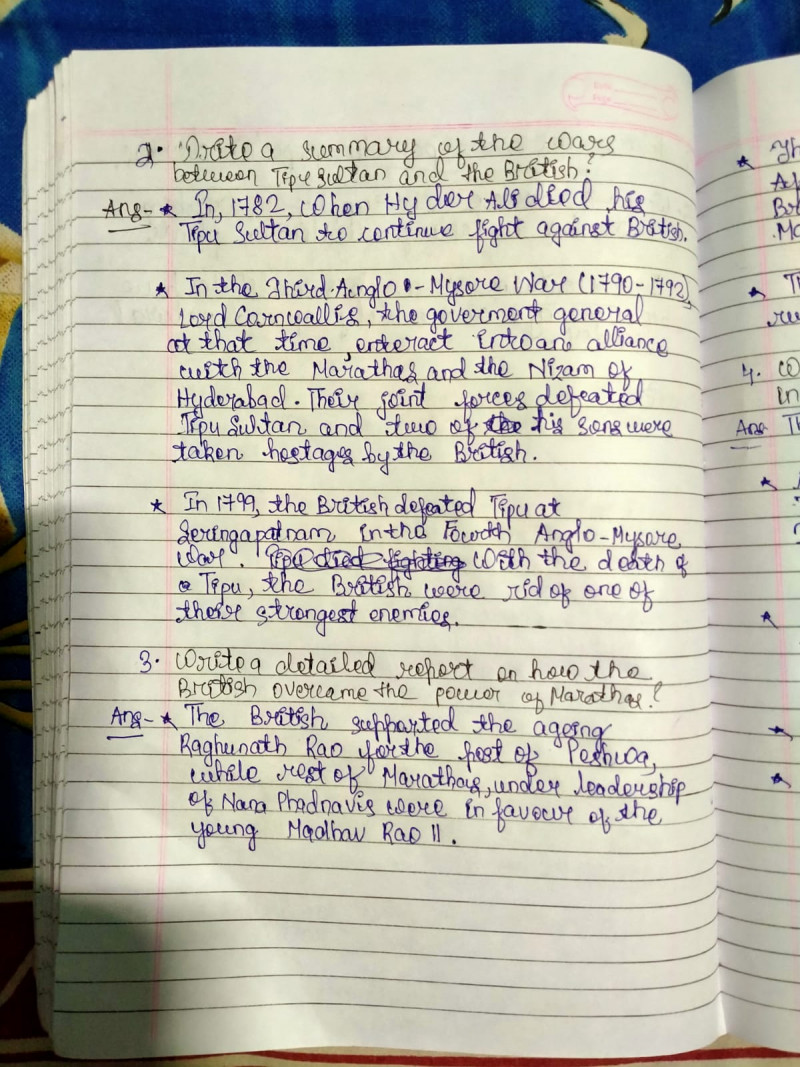 2. Write a summary of the wars
between Tipu Sultan and the British?
Ans- * In, 1782, when Hyder Ali died his
Tipu Sultan to continue fight against British.
* In the Third Anglo-Mysore War (1790-1792),
Lord Cornwallis, the goverment general
at that time, enteract into an alliance
with the Marathas and the Nizam of
Hyderabad. Their joint forces defeated
Tipu Sultan and two of his sons were
taken hostages by the British.
* In 1799, the British defeated Tipu at
Seringapatnam in the Fourth Anglo-Mysore
War. Tipu died fighting With the death of
Tipu, the British were rid of one of
their strongest enemies.
3. Write a detailed report on how the
British overcame the power of Marathas?
Ans- * The British supported the ageing
Raghunath Rao for the post of Peshwa,
while rest of Marathas, under leadership
of Nana Phadnavis were in favour of the
young Madhav Rao II.
*
*
4.
in
Ans
*
*
*
*